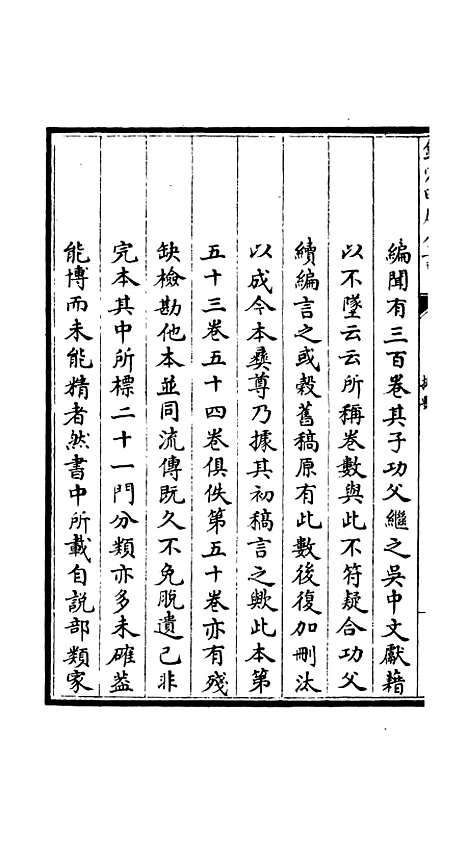 編聞有三百卷其子功父繼之吳中文獻藉
以不墜云云所稱卷數與此不符疑合功父
續編言之或榖舊稿原有此數後復加刪汰
以成今本彞尊乃據其初稿言之歟此本第
五十三卷五十四卷俱佚第五十卷亦有殘
缺檢勘他本並同流傳既久不免脫遺已非
完本其中所標二十一門分類亦多未確葢
能博而未能精者然書中所載自說部類家